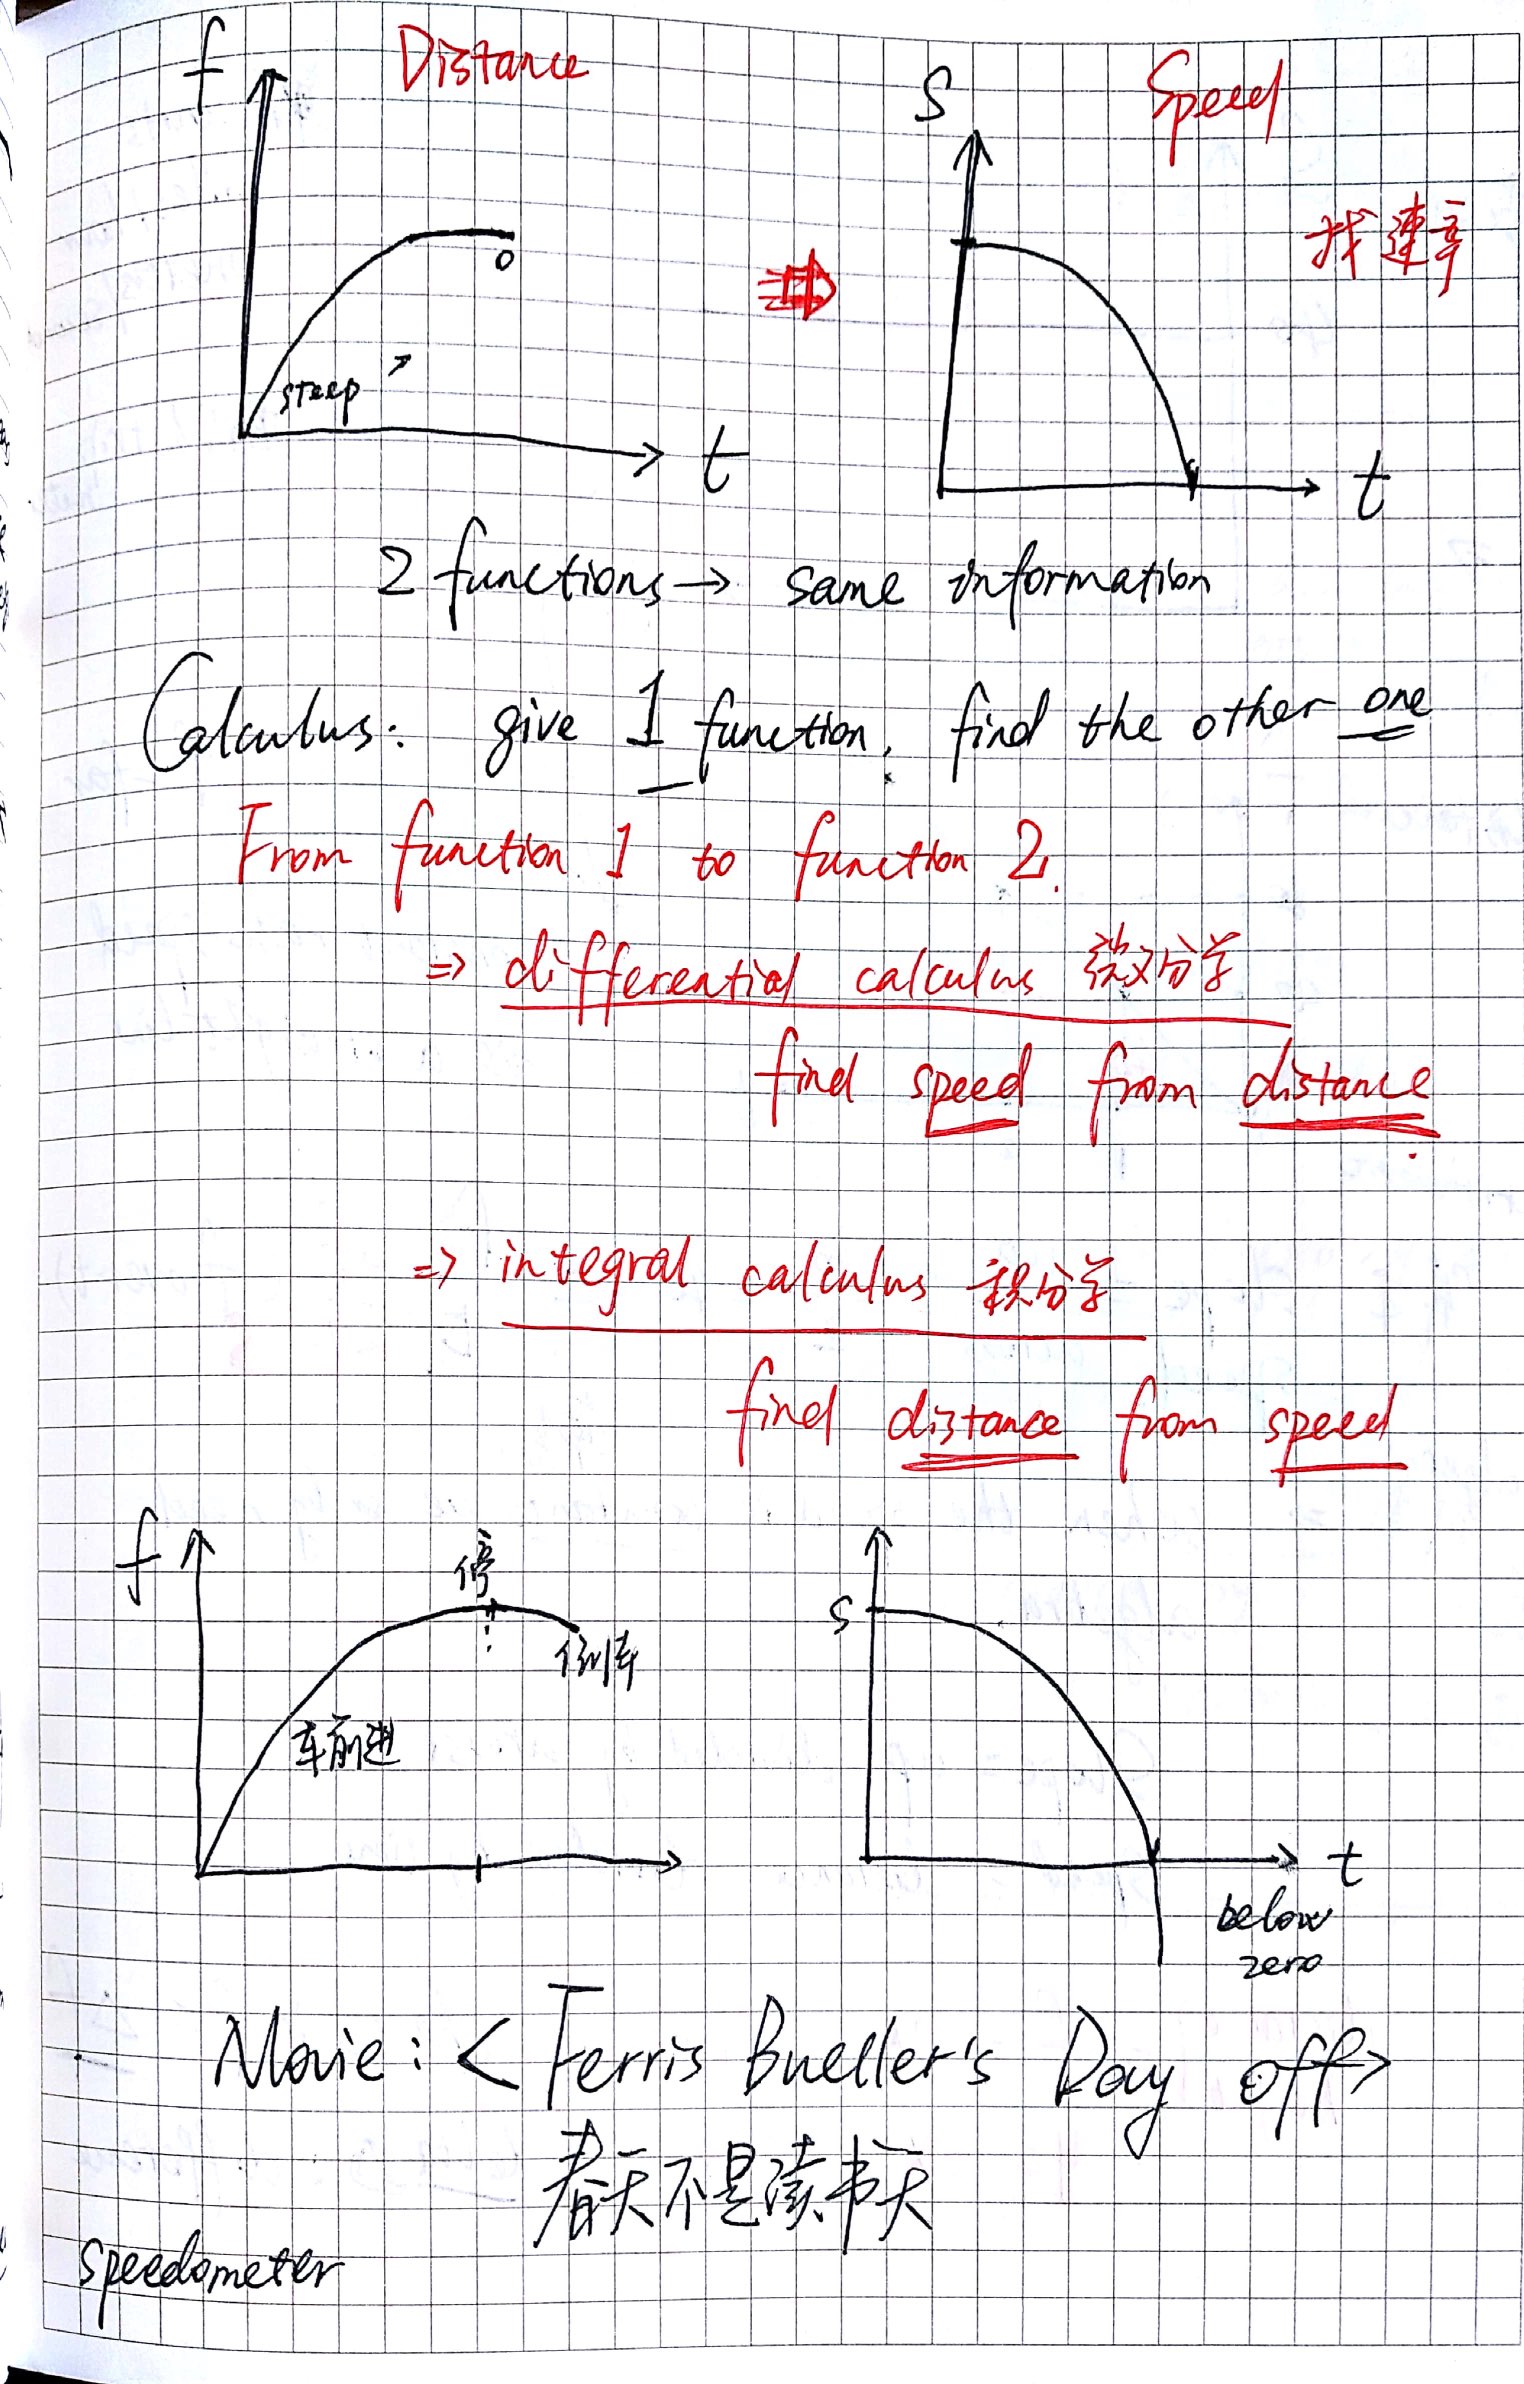 f Distance
S Speed
找速率
0
steep
t
t
2 functions → same information
Calculus: give 1 function, find the other one
From function 1 to function 2.
⇒ differential calculus 微分学
find speed from distance
⇒ integral calculus 积分学
find distance from speed
f
停
S
倒车
车前进
t
below
zero
Movie: < Ferris Bueller's Day off >
春天不是读书天
speedometer